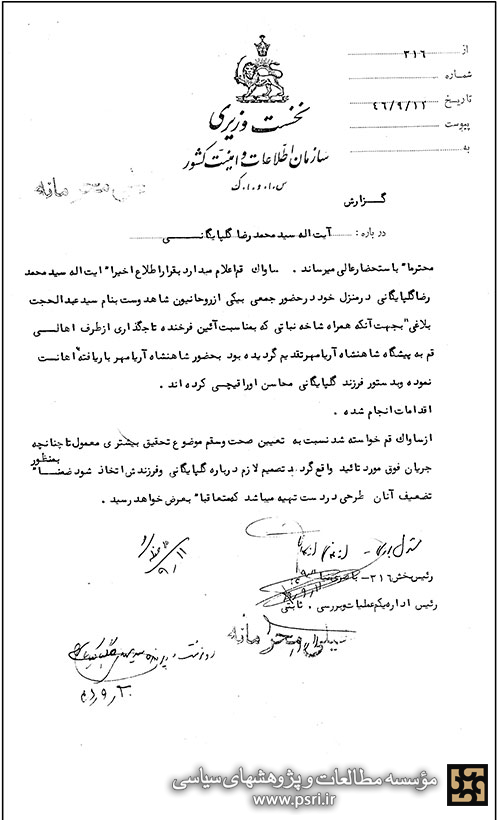 از ۳۱۶
شماره
تاریخ ۴۶/۹/۱۲
پیوست
به
نخست وزیری
سازمان اطلاعات و امنیت کشور
س.ا.و.ا.ک
خیلی محرمانه
گزارش
درباره: آیت اله سید محمد رضا گلپایگانی
محترما" باستحضارعالی میرساند. ساواک قم اعلام میدارد بقرار اطلاع اخیرا" آیت اله سید محمد
رضا گلپایگانی درمنزل خود درحضور جمعی بیکی ازروحانیون شاهدوست بنام سید عبدالحجت
بلاغی "بجهت آنکه همراه شاخه نباتی که بمناسبت آئین فرخنده تاجگذاری ازطرف اهالی
قم به پیشگاه شاهنشاه آریامهر تقدیم گردیده بود بحضور شاهنشاه آریامهر باریافته" اهانت
نموده وبدستور فرزند گلپایگانی محاسن اوراقیچی کرده اند.
اقدامات انجام شده.
ازساواک قم خواسته شد نسبت به تعیین صحت وسقم موضوع تحقیق بیشتری معمول تا چنانچه
جریان فوق مورد تائید واقع گردید تصمیم لازم درباره گلپایگانی وفرزندش اتخاذ شود ضمنا" بمنظور
تضعیف آنان طرحی دردست تهیه میباشد که متعاقبا" بعرض خواهد رسید.
رئیس بخش ۳۱۶-
رئیس اداره یکم عملیات وبررسی. ثابتی
خیلی محرمانه
مؤسسه مطالعات و پژوهشهای سیاسی
www.psri.ir